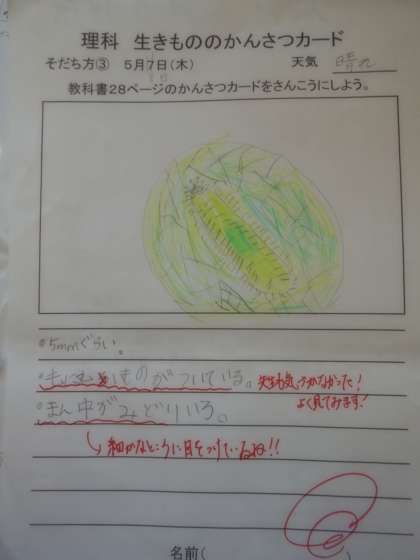 理科 生きもののかんさつカード
そだち方③ 5月7日(木) 天気 晴れ
教科書28ページのかんさつカードをさんこうにしよう。
•5mmぐらい。
ものがついている。 先生も気づかなかった!
よく見てみます!
•まん中がみどりいろ。
細かなところに目をつけているね!!
名前(